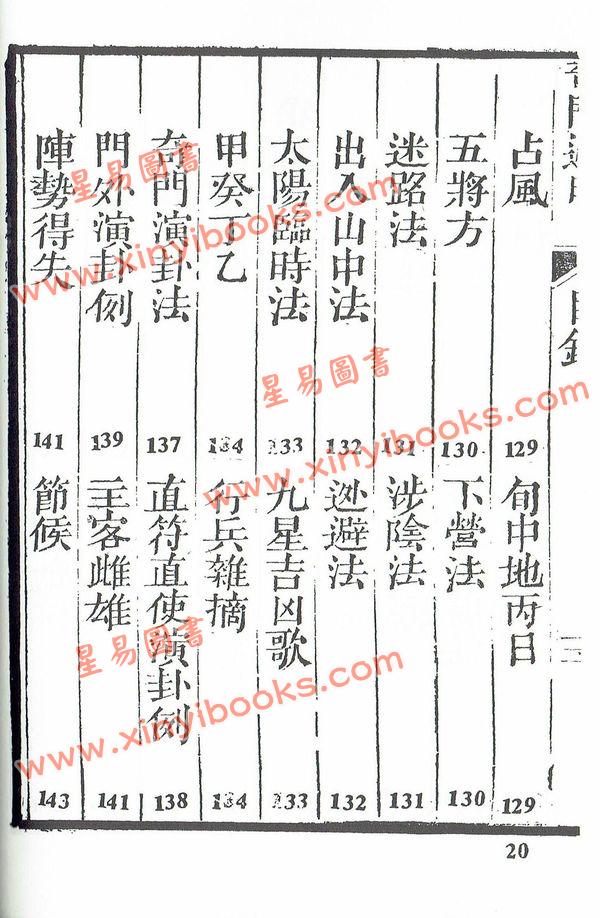 目錄
占風 129
旬中地丙日 129
五將方 130
下營法 130
迷路法 131
涉陰法 131
出入山中法 132
迯避法 132
太陽臨時法 133
九星吉凶歌 133
甲癸丁乙 134
行兵雜摘 134
奇門演卦法 137
直符直使演卦例 138
門外演卦例 139
主客雌雄 141
陣勢得失 141
節候 143
20
星易圖書
www.xinyibooks.com
星易圖書
www.xinyibooks.com
星易圖書
www.xinyibooks.com